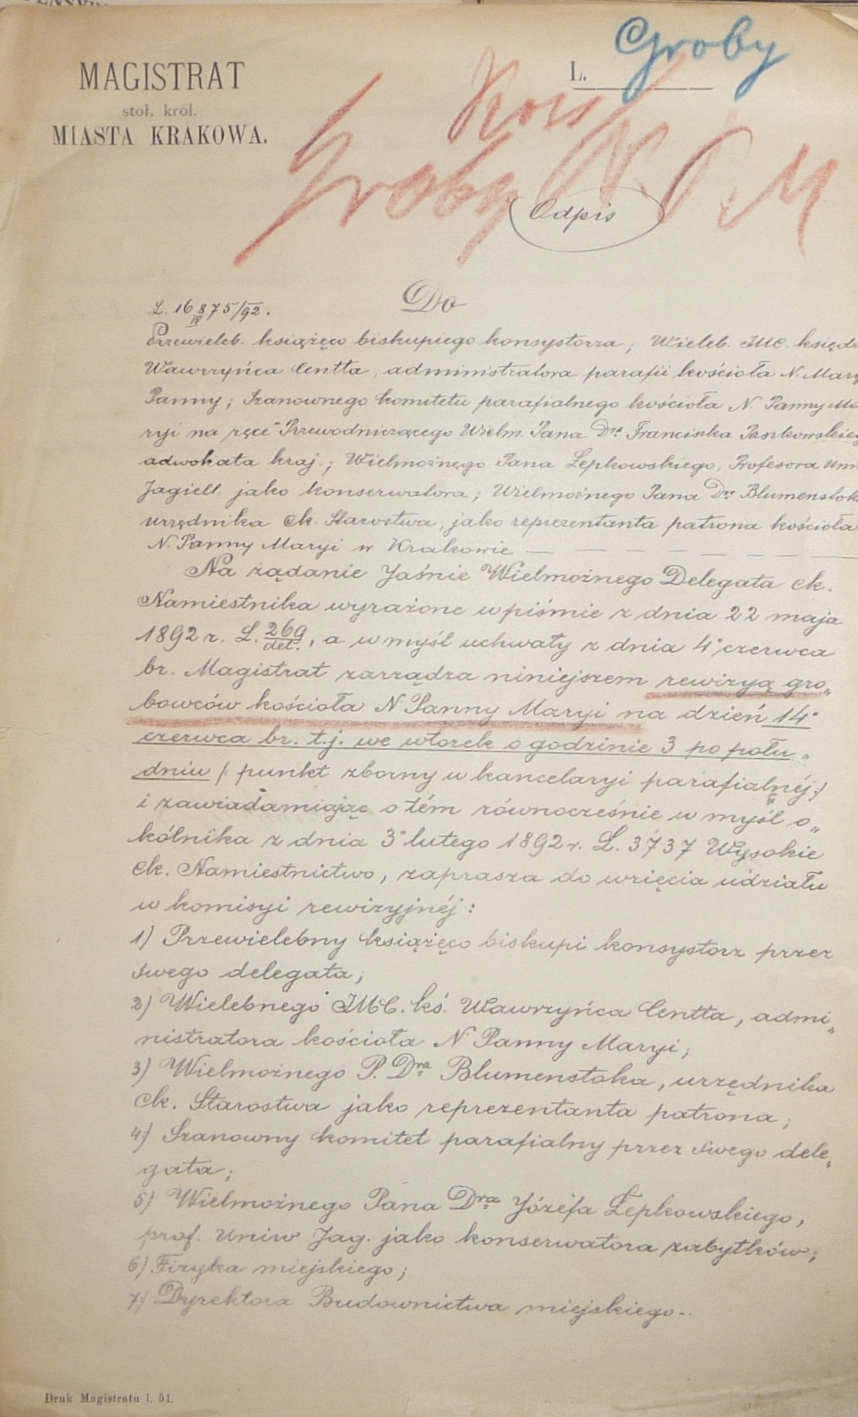 MAGISTRAT
stoł. król.
MIASTA KRAKOWA.
L. Groby
Kość
Groby N. P. M
Odpis
L. 16875/92.
IV
Do
Przewieleb. książęco biskupiego konsystorza; Wieleb. JMC. księdz
Wawrzyńca Centta, administratora parafii kościoła N. Mary
Panny; Szanownego komitetu parafialnego kościoła N. Panny Ma
ryi na ręce Przewodniczącego Wielm. Pana Dra Franciszka Paszkowskieg
adwokata kraj.; Wielmożnego Pana Łepkowskiego, Profesora Uni
Jagiell. jako konserwatora; Wielmożnego Pana Dr Blumenstok
urzędnika ck. Starostwa, jako reprezentanta patrona kościoła
N. Panny Maryi w Krakowie — — — — — —
Na żądanie Jaśnie Wielmożnego Delegata ck.
Namiestnika wyrażone w piśmie z dnia 22 maja
1892 r. L. 269/del., a w myśl uchwały z dnia 4° czerwca
br. Magistrat zarządza niniejszem rewizyą gro„
bowców kościoła N Panny Maryi na dzień 14°
czerwca br. t.j. we wtorek o godzinie 3 po połu„
dniu /: punkt zborny w kancelaryi parafialnéj :/
i zawiadamiając o tém równocześnie w myśl o„
kólnika z dnia 3° lutego 1892 r. L. 3737 Wysokie
ck. Namiestnictwo, zaprasza do wzięcia udziału
w komisyi rewizyjnéj:
1) Przewielebny książęco biskupi konsystorz przez
swego delegata;
2) Wielebnego JMC. ks. Wawrzyńca Centta, admi„
nistratora kościoła N Panny Maryi;
3) Wielmożnego P. Dra Blumenstoka, urzędnika
ck. Starostwa jako reprezentanta patrona;
4) Szanowny komitet parafialny przez swego dele„
gata;
5) Wielmożnego Pana Dra Józefa Łepkowskiego,
prof. Uniw Jag. jako konserwatora zabytków;
6) Fizyka miejskiego;
7) Dyrektora Budownictwa miejskiego..
Druk Magistratu l. 51.